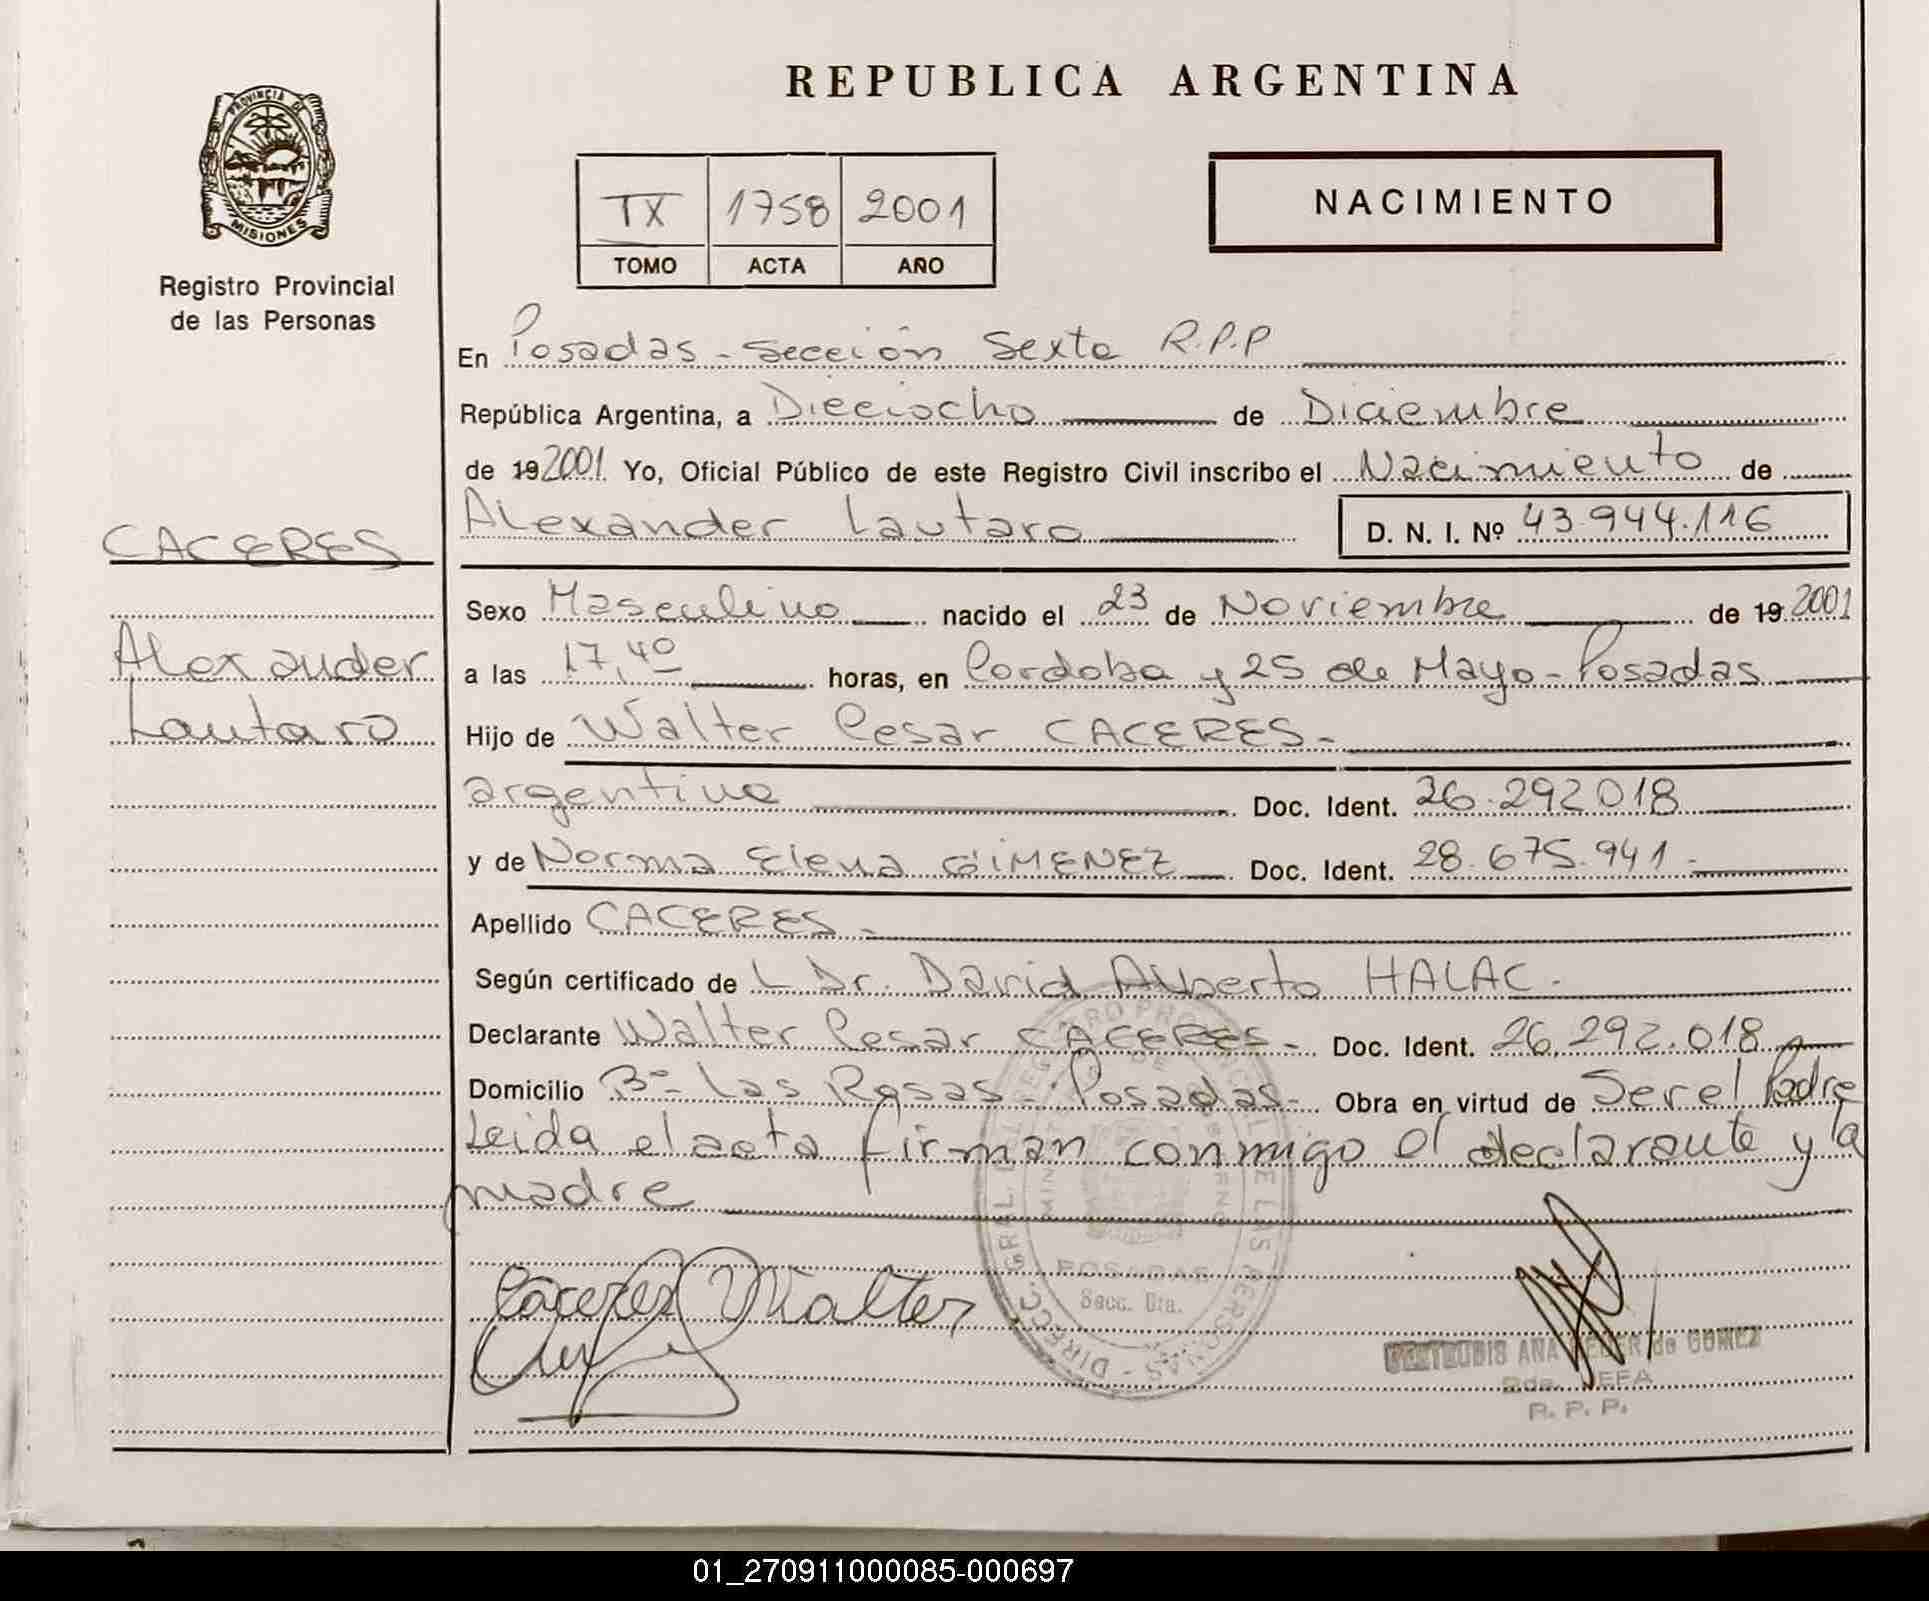 REPUBLICA ARGENTINA
PROVINCIA DE
MISIONES
Registro Provincial
de las Personas
TX 1758 2001
TOMO ACTA AÑO
NACIMIENTO
En Posadas - Sección Sexta R.P.P
República Argentina, a Dieciocho de Diciembre
de 192001. Yo, Oficial Público de este Registro Civil inscribo el Nacimiento de
Alexander Lautaro D. N. I. Nº 43.944.116
CACERES
Alexander
Lautaro
Sexo Masculino nacido el 23 de Noviembre de 19 2001
a las 17,40 horas, en Cordoba y 25 de Mayo - Posadas
Hijo de Walter Cesar CACERES -
argentino Doc. Ident. 26.292.018
y de Norma Elena GIMENEZ Doc. Ident. 28.675.941 -
Apellido CACERES -
Según certificado de L Dr. David Alberto HALAC -
Declarante Walter Cesar CACERES - Doc. Ident. 26.292.018
Domicilio Bº Las Rosas - Posadas - Obra en virtud de Ser el Padre
Leida el acta firman conmigo el declarante y la
madre
Caceres Walter
POSADAS
Secc. 6ta.
GERTRUDIS ANA de GOMEZ
JEFA
R. P. P.
01_270911000085-000697